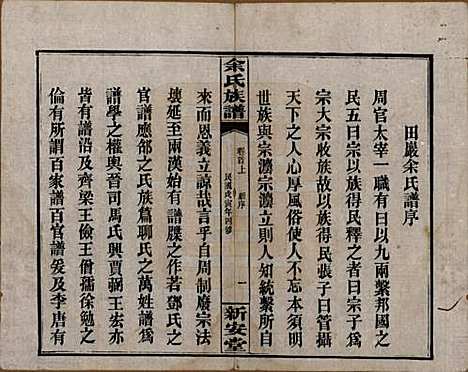 田嚴余氏譜序
周官太宰一職有曰以九兩繫邦國之
民五曰宗以族得民釋之者曰宗子有
大宗收族故以族得民張子曰管攝
天下之人心厚風俗使人不忘本須明
世族與宗灋宗灋立則人知統繫所自
余氏族譜
卷首上
舊序
民國戊寅年四修
一
新安堂
來而恩義立諒哉言乎自周制廢宗法
壞延至兩漢始有譜牒之作若鄧氏之
官譜應劭之氏族篇聊氏之萬姓譜爲
譜學之權輿晉司馬氏興賈弼王宏亦
皆有譜沿及齊梁王儉王僧孺徐勉之
倫有所謂百家譜百官譜爰及李唐有